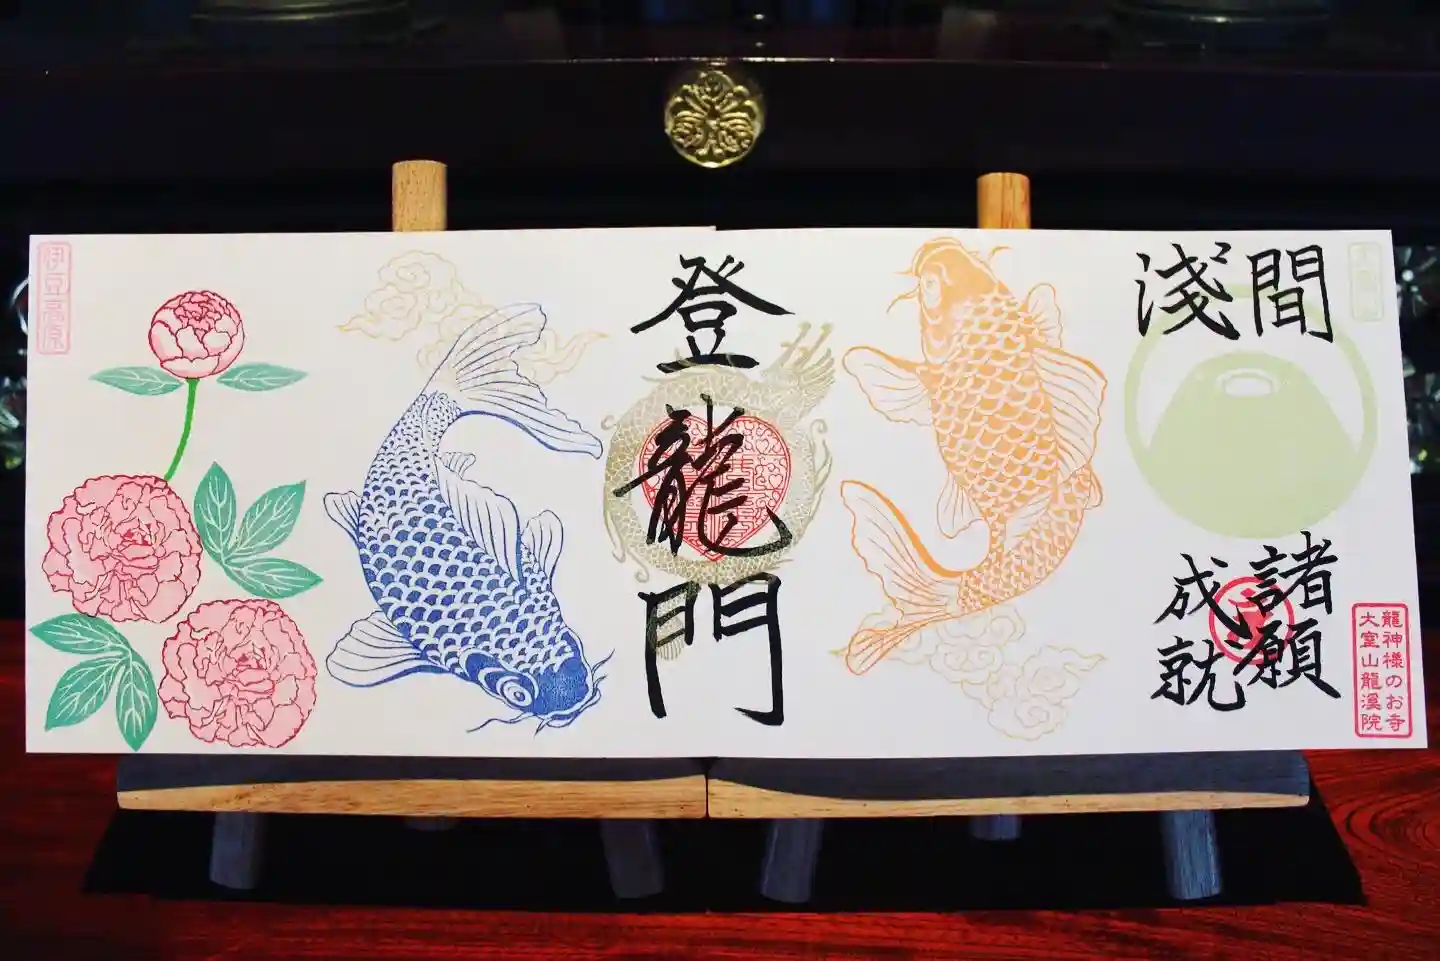 淺間
諸願
成就
龍神様のお寺
大室山龍溪院
登龍門
伊豆高原